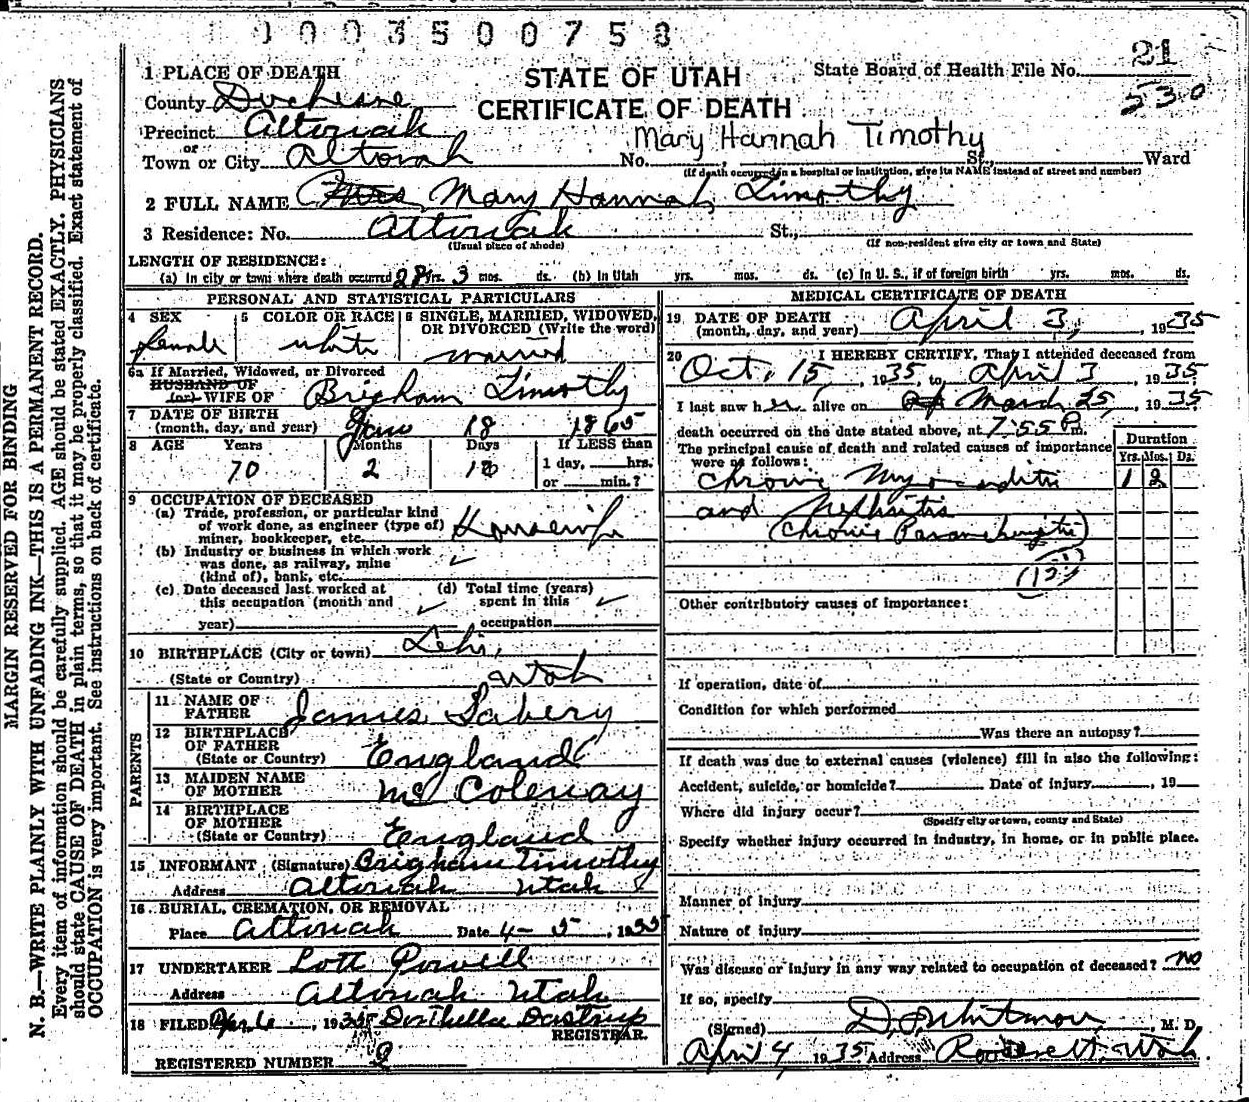 0003500758
21
1 PLACE OF DEATH
STATE OF UTAH
State Board of Health File No.
County Duchesne
CERTIFICATE OF DEATH
530
Precinct Altonah
Mary Hannah Timothy
or
Town or City Altonah No. St., Ward
(If death occurred in a hospital or institution, give its NAME instead of street and number)
2 FULL NAME Mrs Mary Hannah Timothy
3 Residence: No. Altonah St.,
(Usual place of abode) (If non-resident give city or town and State)
LENGTH OF RESIDENCE:
(a) In city or town where death occurred 28 yrs. 3 mos. ds. (b) In Utah yrs. mos. ds. (c) In U. S., if of foreign birth yrs. mos. ds.
PERSONAL AND STATISTICAL PARTICULARS
4 SEX 5 COLOR OR RACE 6 SINGLE, MARRIED, WIDOWED,
OR DIVORCED (Write the word)
female white married
6a If Married, Widowed, or Divorced
HUSBAND OF
(or) WIFE OF Brigham Timothy
7 DATE OF BIRTH
(month, day, and year) Jan 18 1865
8 AGE Years Months Days If LESS than
70 2 1 day, hrs.
or min.?
9 OCCUPATION OF DECEASED
(a) Trade, profession, or particular kind
of work done, as engineer (type of)
miner, bookkeeper, etc. Housewife
(b) Industry or business in which work
was done, as railway, mine
(kind of), bank, etc. ✓
(c) Date deceased last worked at (d) Total time (years)
this occupation (month and ✓ spent in this ✓
year) occupation
10 BIRTHPLACE (City or town) Lehi,
(State or Country) Utah
PARENTS
11 NAME OF
FATHER James
12 BIRTHPLACE
OF FATHER
(State or Country) England
13 MAIDEN NAME
OF MOTHER
14 BIRTHPLACE
OF MOTHER
(State or Country) England
15 INFORMANT (Signature) Brigham Timothy
Address Altonah Utah
16 BURIAL, CREMATION, OR REMOVAL
Place Altonah Date 4-5, 1935
17 UNDERTAKER Lott Powell
Address Altonah Utah
18 FILED Apr 6, 1935
REGISTRAR.
REGISTERED NUMBER 2
MEDICAL CERTIFICATE OF DEATH
19 DATE OF DEATH
(month, day, and year) April 3, 1935
20 I HEREBY CERTIFY, That I attended deceased from
Oct. 15, 1935, to April 3, 1935.
I last saw her alive on March 25, 1935
death occurred on the date stated above, at 7:55 P m.
The principal cause of death and related causes of importance
were as follows:
Duration
Yrs. Mos. Ds.
Chronic Myocarditis 1 2
and Nephritis
(Chronic
Other contributory causes of importance:
If operation, date of
Condition for which performed
Was there an autopsy?
If death was due to external causes (violence) fill in also the following:
Accident, suicide, or homicide? Date of injury, 19
Where did injury occur?
(Specify city or town, county and State)
Specify whether injury occurred in industry, in home, or in public place.
Manner of injury
Nature of injury
Was disease or injury in any way related to occupation of deceased? no
If so, specify
(Signed) Whitmore, M. D.
April 4 1935 Address Roosevelt, Utah.
MARGIN RESERVED FOR BINDING
N. B.—WRITE PLAINLY WITH UNFADING INK—THIS IS A PERMANENT RECORD.
Every item of information should be carefully supplied. AGE should be stated EXACTLY. PHYSICIANS
should state CAUSE OF DEATH in plain terms, so that it may be properly classified. Exact statement of
OCCUPATION is very important. See instructions on back of certificate.